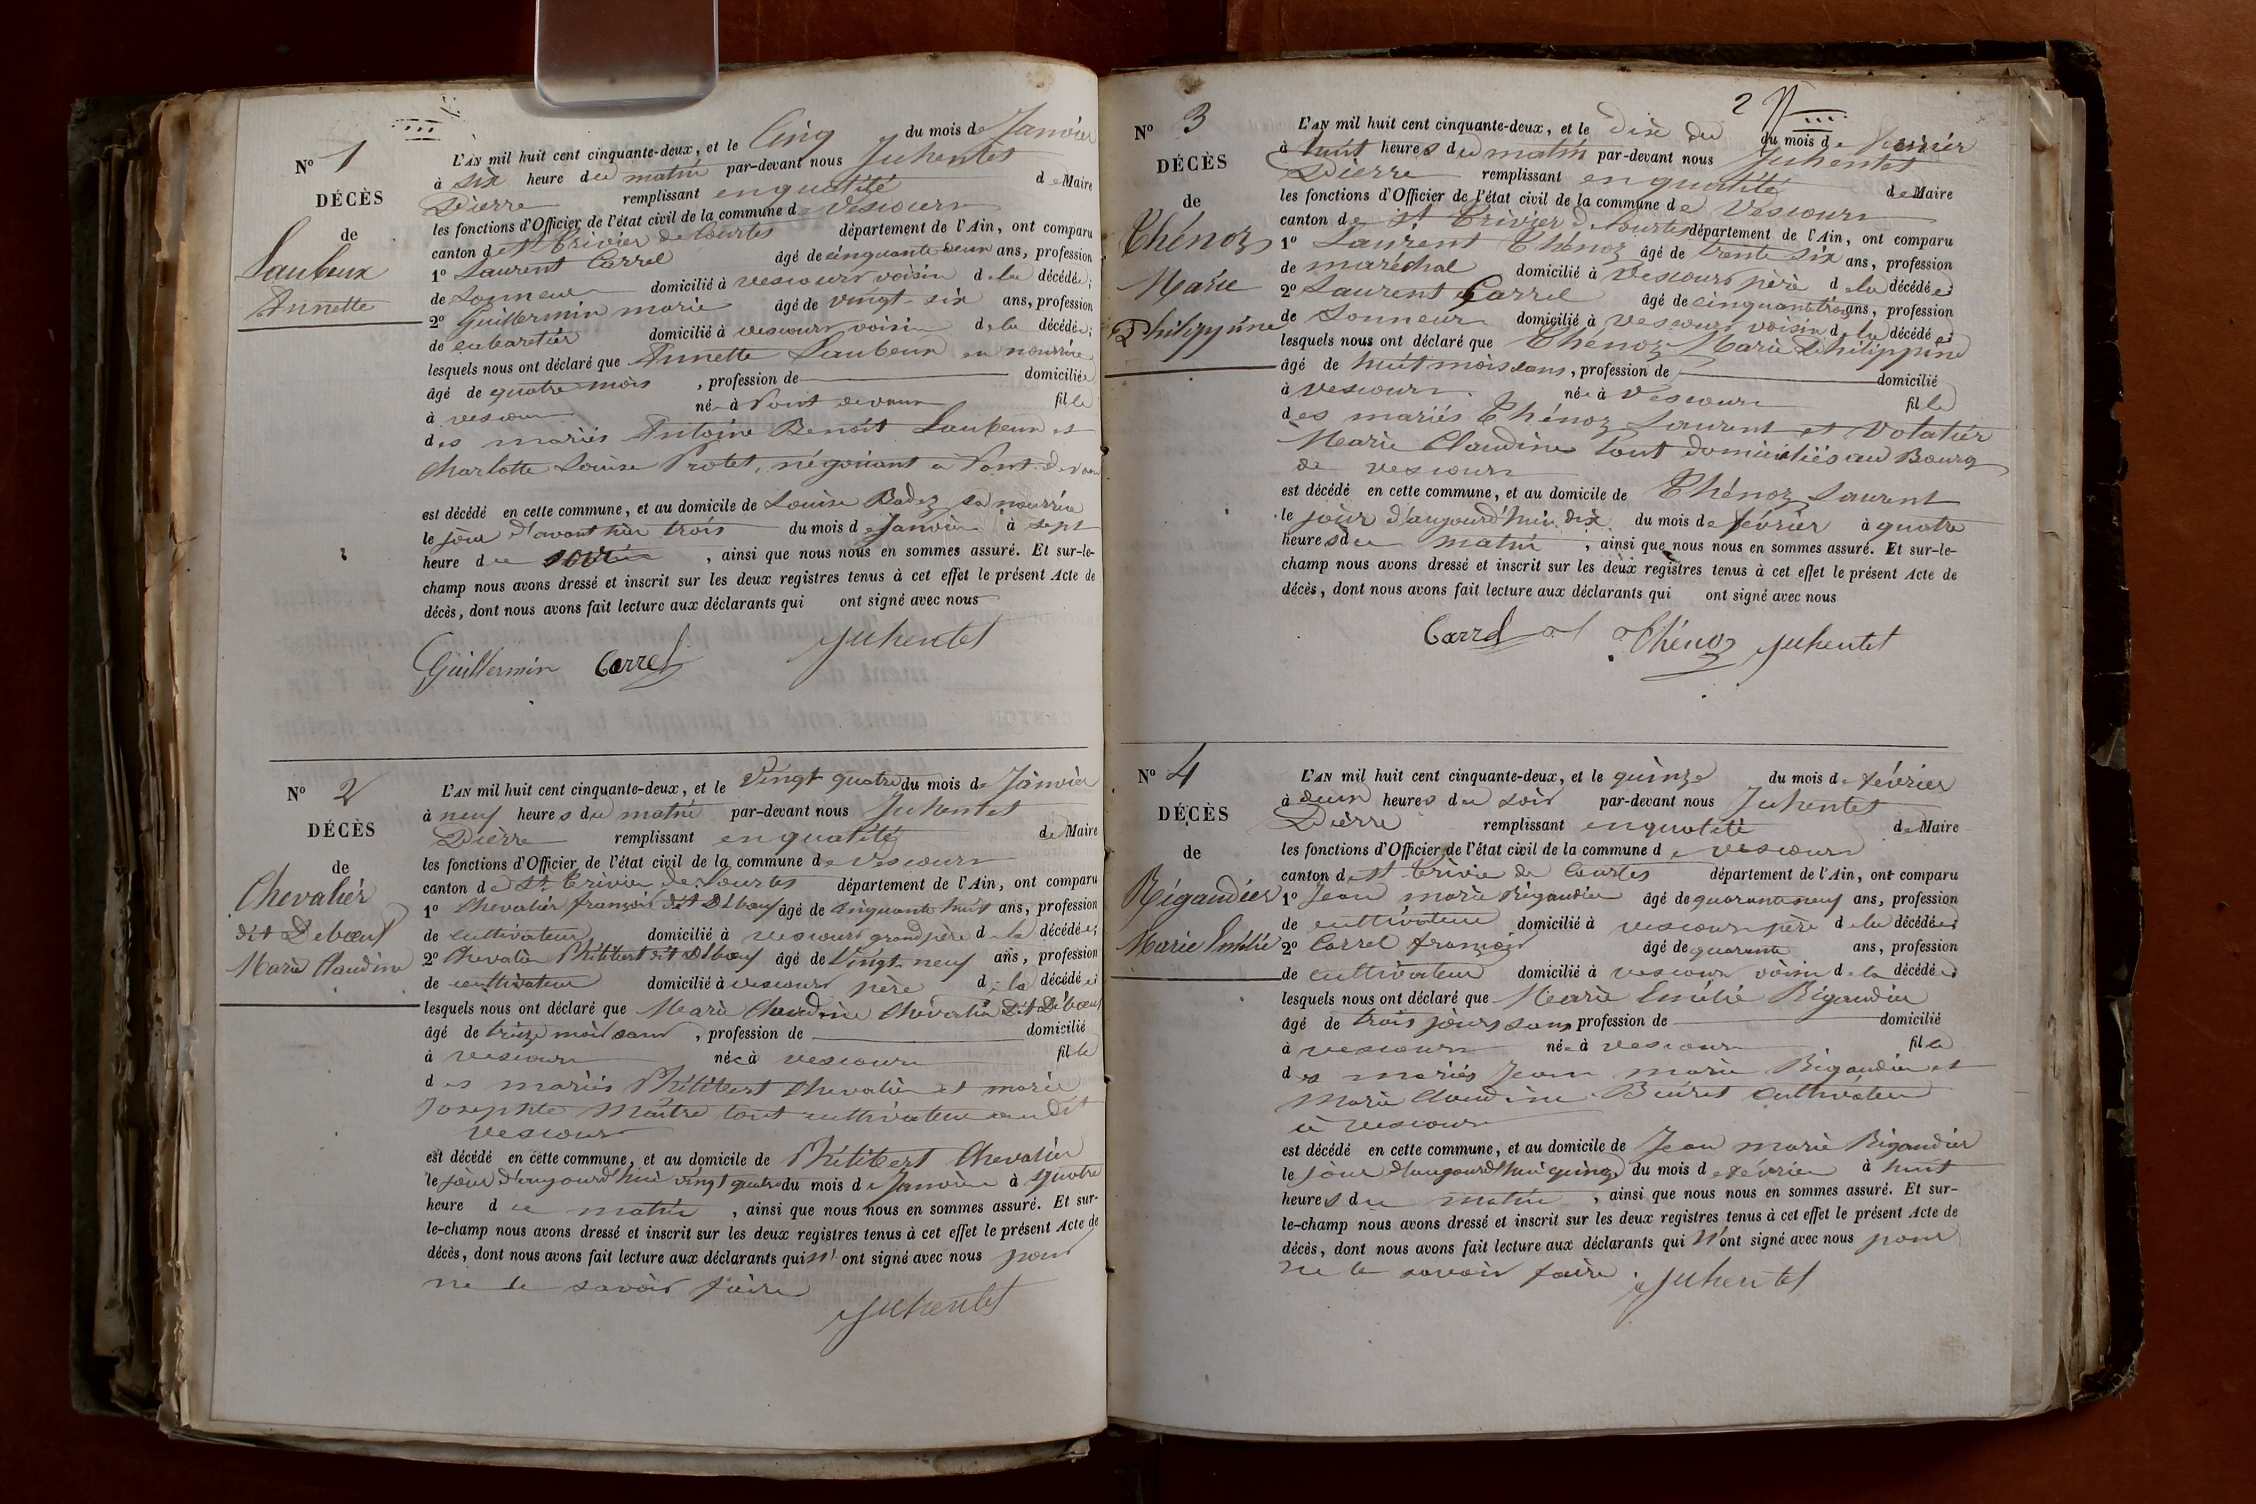 N° 1
DÉCÈS
de
Laubeux
Annette
L'AN mil huit cent cinquante-deux, et le Cinq du mois de Janvier
à six heure du matin par-devant nous Juhentet
Pierre remplissant en qualité de Maire
les fonctions d'Officier de l'état civil de la commune de Vescours
canton de St Trivier de Courtes département de l'Ain, ont comparu
1° Laurent Carrel âgé de cinquante deux ans, profession
de Sonneur domicilié à vescours voisin de la décédée;
2° Guillermin marie âgé de vingt-six ans, profession
de cabaretier domicilié à vescours voisin de la décédée;
lesquels nous ont déclaré que Annette Laubeux en nourrice
âgé de quatre mois, profession de domiciliée
à vescours née à Pont devaux fille
des mariés Antoine Benoît Laubeux et
Charlotte Louise Protet, négociant a Pont-de-vaux
est décédé en cette commune, et au domicile de Louise Badez sa nourrice
le jour d'avant hier trois du mois de Janvier à sept
heure du soir, ainsi que nous nous en sommes assuré. Et sur-le-
champ nous avons dressé et inscrit sur les deux registres tenus à cet effet le présent Acte de
décès, dont nous avons fait lecture aux déclarants qui ont signé avec nous
Guillermin Carrel Juhentet
N° 2
DÉCÈS
de
Chevalier
dit Debœuf
Marie Claudine
L'AN mil huit cent cinquante-deux, et le Vingt quatre du mois de Janvier
à neuf heures du matin par-devant nous Juhentet
Pierre remplissant en qualité de Maire
les fonctions d'Officier de l'état civil de la commune de vescours
canton de St. Trivier de Courtes département de l'Ain, ont comparu
1° Chevalier françois dit Debœuf âgé de cinquante huit ans, profession
de cultivateur domicilié à vescours grand père de la décédée;
2° Chevalier Philibert dit Debœuf âgé de Vingt-neuf ans, profession
de cultivateur domicilié à vescours père de la décédée;
lesquels nous ont déclaré que Marie Claudine Chevalier dit Debœuf
âgé de treize mois sans, profession de domicilié
à vescours née à vescours fille
des mariés Philibert Chevalier et marie
Josephte Maître tout cultivateur au dit
vescours
est décédé en cette commune, et au domicile de Philibert Chevalier
le jour d'aujourd'hui vingt quatre du mois de Janvier à quatre
heure du matin, ainsi que nous nous en sommes assuré. Et sur-
le-champ nous avons dressé et inscrit sur les deux registres tenus à cet effet le présent Acte de
décès, dont nous avons fait lecture aux déclarants qui n'ont signé avec nous pour
ne le savoir faire
Juhentet
2
N° 3
DÉCÈS
de
Thénoz
Marie
Philippine
L'AN mil huit cent cinquante-deux, et le dix du du mois de février
à huit heures du matin par-devant nous Juhentet
Pierre remplissant en qualité de Maire
les fonctions d'Officier de l'état civil de la commune de Vescours
canton de St Trivier de Courtes département de l'Ain, ont comparu
1° Laurent Thénoz âgé de trente six ans, profession
de maréchal domicilié à Vescours père de la décédée;
2° Laurent Carrel âgé de cinquante trois ans, profession
de Sonneur domicilié à vescours voisin de la décédée;
lesquels nous ont déclaré que Thénoz Marie Philippine
âgé de huit mois sans, profession de domicilié
à vescours née à Vescours fille
des mariés Thénoz Laurent et Volatier
Marie Claudine tout domiciliés au Bourg
de vescours
est décédé en cette commune, et au domicile de Thénoz Laurent
le jour d'aujourd'hui dix du mois de février à quatre
heures du matin, ainsi que nous nous en sommes assuré. Et sur-le-
champ nous avons dressé et inscrit sur les deux registres tenus à cet effet le présent Acte de
décès, dont nous avons fait lecture aux déclarants qui ont signé avec nous
Carrel Thénoz Juhentet
N° 4
DÉCÈS
de
Rigaudier
Marie Emélie
L'AN mil huit cent cinquante-deux, et le quinze du mois de février
à deux heures du soir par-devant nous Juhentet
Pierre remplissant en qualité de Maire
les fonctions d'Officier de l'état civil de la commune de vescours
canton de St Trivier de Courtes département de l'Ain, ont comparu
1° Jean marie Rigaudier âgé de quarante neuf ans, profession
de cultivateur domicilié à vescours père de la décédée;
2° Carrel françois âgé de quarante ans, profession
de cultivateur domicilié à vescours voisin de la décédée;
lesquels nous ont déclaré que Marie Emélie Rigaudier
âgé de trois jours sans profession de domicilié
à vescours née à vescours fille
des mariés Jean marie Rigaudier et
Marie Claudine cultivateur
à vescours
est décédé en cette commune, et au domicile de Jean marie Rigaudier
le jour d'aujourd'hui quinze du mois de février à huit
heures du matin, ainsi que nous nous en sommes assuré. Et sur-
le-champ nous avons dressé et inscrit sur les deux registres tenus à cet effet le présent Acte de
décès, dont nous avons fait lecture aux déclarants qui n'ont signé avec nous pour
ne le savoir faire Juhentet